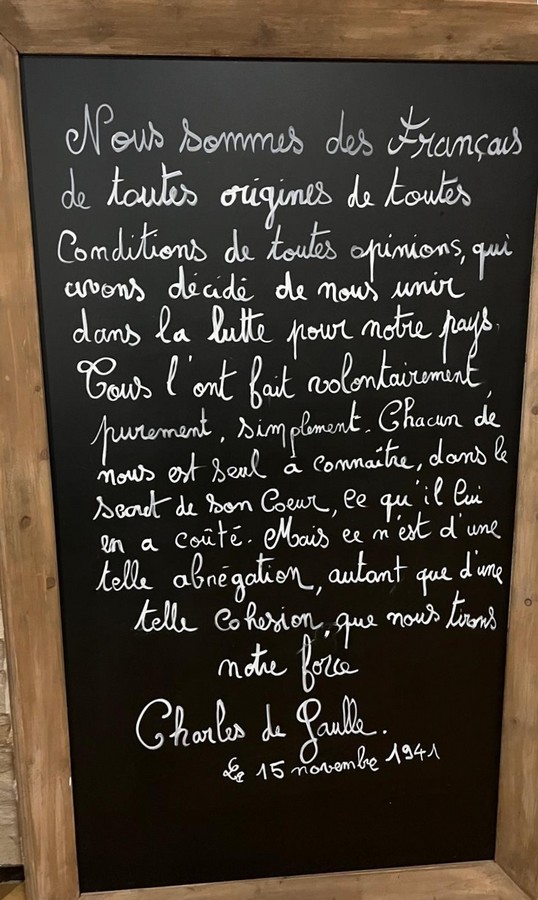 Nous sommes des Français
de toutes origines de toutes
Conditions de toutes opinions, qui
avons décidé de nous unir
dans la lutte pour notre pays.
Tous l'ont fait volontairement,
purement, simplement. Chacun de
nous est seul à connaître, dans le
secret de son Coeur, ce qu'il lui
en a coûté. Mais ce n'est d'une
telle abnégation, autant que d'une
telle cohesion, que nous tirons
notre force
Charles de Gaulle.
Le 15 novembre 1941